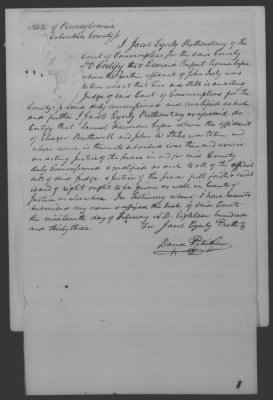 State of Pennsylvania
Columbia County ss
I Jacob Eyerly Prothonotary of the
Court of Common pleas for the said County
Do Certify that Leonard Rupert Esquire before
whom the within affidavit of John was
taken was at that time and still is an acting
Judge of said Court of Common pleas for the
County aforesaid duly commissioned and qualified as such
and further I Jacob Eyerly Prothonotary as aforesaid do
Certify that Samuel Harman before whom the affidavit
of and John was taken and
whose name is thereunto subscribed was then and now is
an acting Justice of the peace in and for said County
duly Commissioned & qualified as such to all of the official
acts of said Judge & Justice of the peace full faith & credit
is and of right ought to be given as well in Courts of
Justice as elsewhere In Testimony whereof I have hereunto
subscribed my name & affixed the seal of said Court
the nineteenth day of February A.D. Eighteen hundred
and thirty three
For Jacob Eyerly Prothy
David